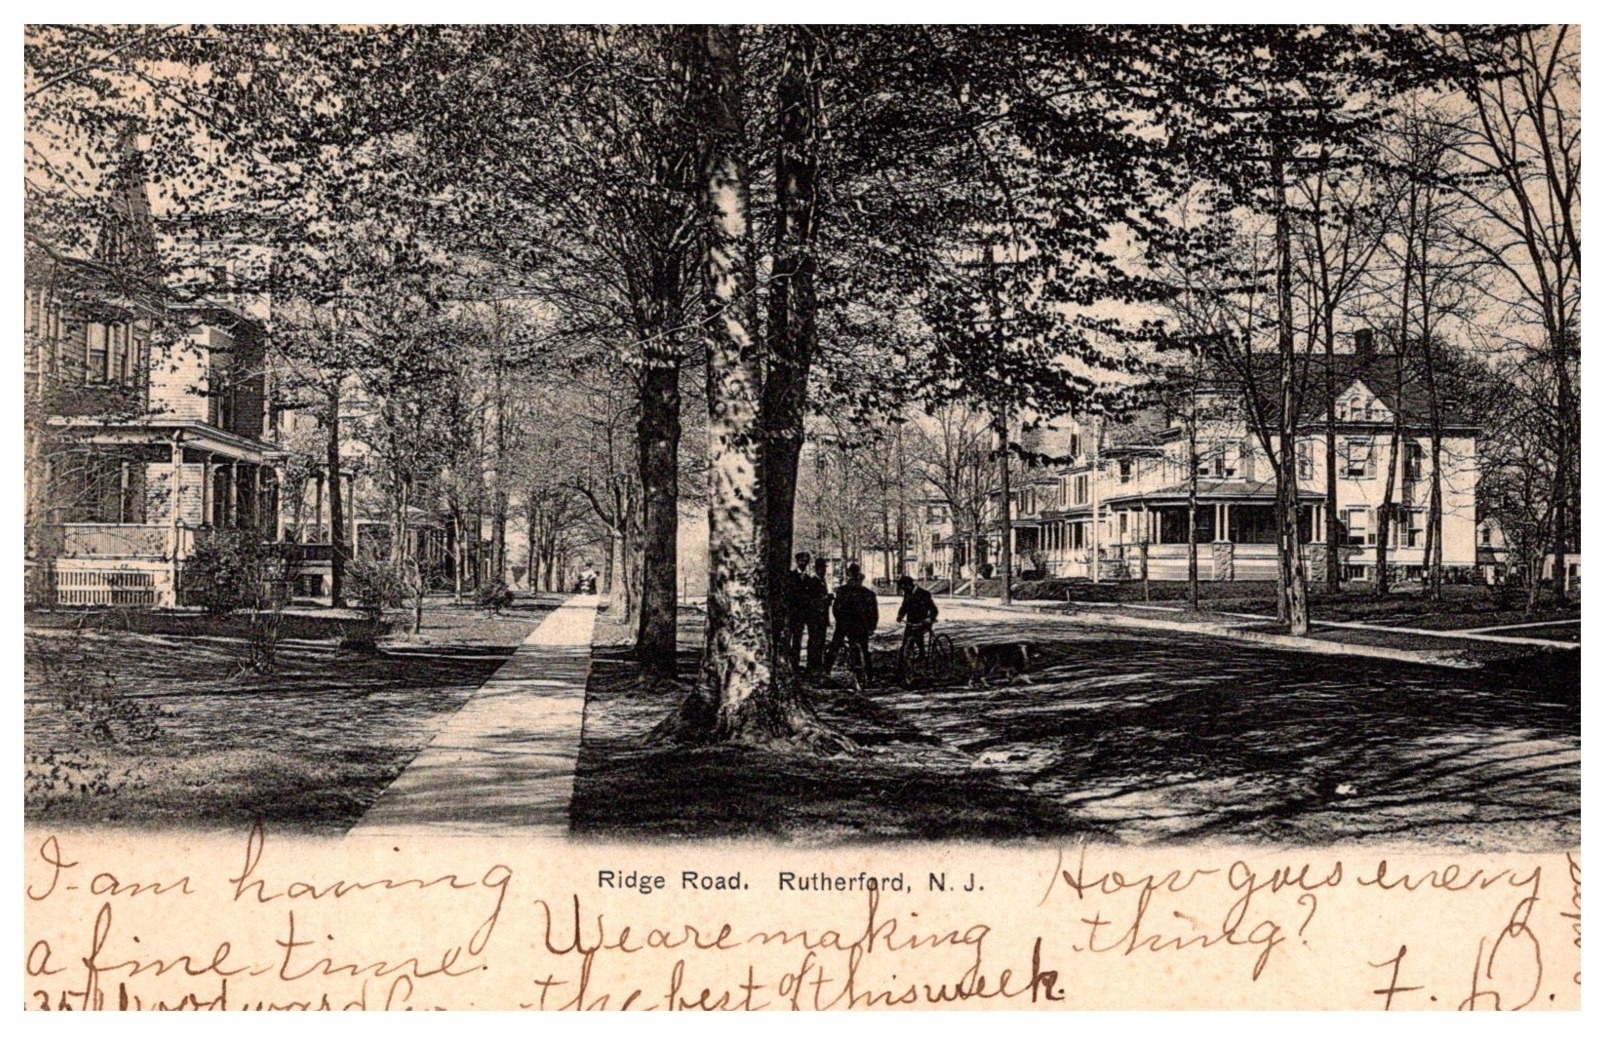 Ridge Road. Rutherford, N. J.
I am having
a fine time.
35 Woodward Av.
We are making
the best of this week.
How goes every
thing?
F. D.